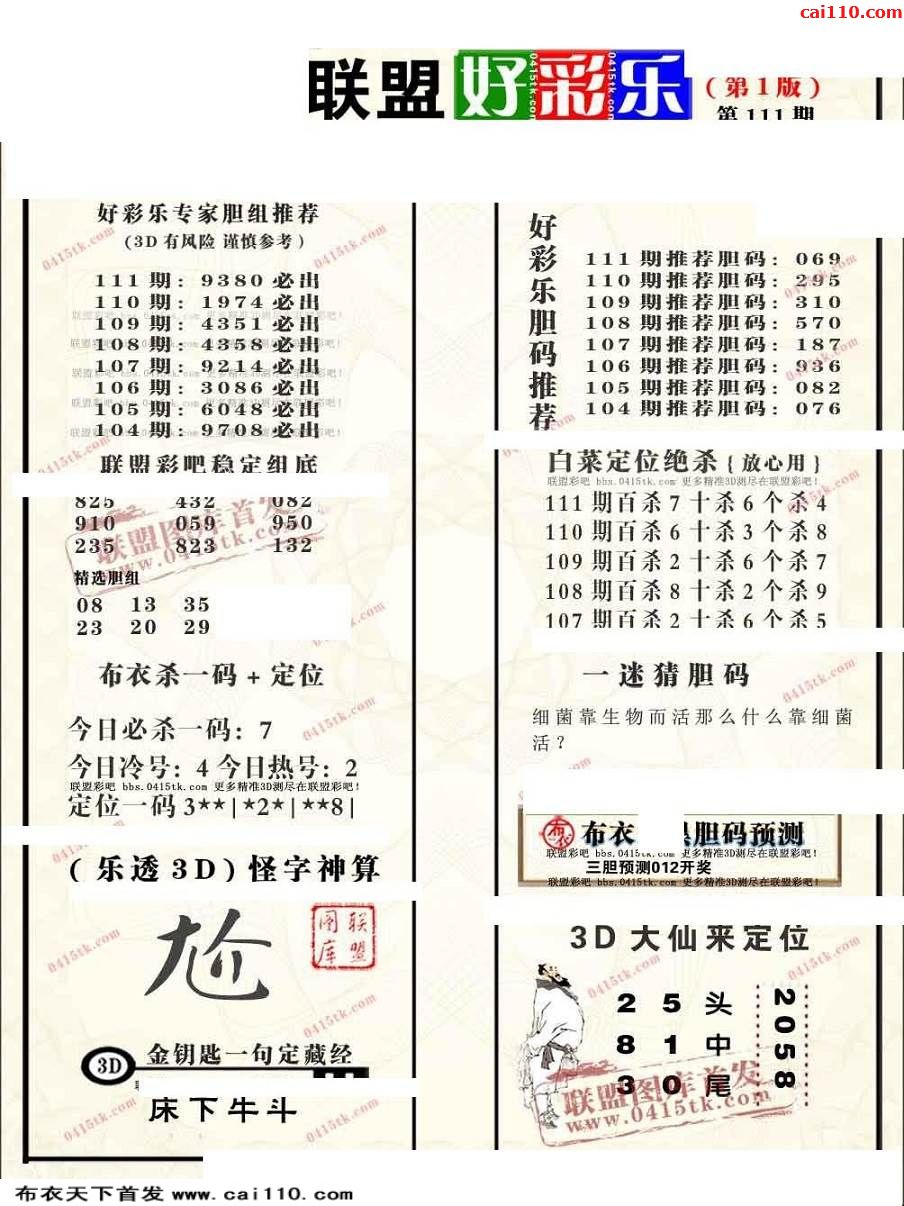 cai110.com
联盟好彩乐
(第1版)
第111期
好彩乐专家胆组推荐
(3D有风险 谨慎参考)
111期: 9380必出
110期: 1974必出
109期: 4351必出
108期: 4358必出
107期: 9214必出
106期: 3086必出
105期: 6048必出
104期: 9708必出
联盟彩吧稳定组底
825 432 082
910 059 950
235 823 132
精选胆组
08 13 35
23 20 29
布衣杀一码+定位
今日必杀一码: 7
今日冷号: 4 今日热号: 2
联盟彩吧 bbs.0415tk.com 更多精准3D测尽在联盟彩吧!
定位一码 3**|*2*|**8|
(乐透3D)怪字神算
尬
联盟图库
3D
金钥匙一句定藏经
床下牛斗
好彩乐胆码推荐
111期推荐胆码: 069
110期推荐胆码: 295
109期推荐胆码: 310
108期推荐胆码: 570
107期推荐胆码: 187
106期推荐胆码: 936
105期推荐胆码: 082
104期推荐胆码: 076
白菜定位绝杀{放心用}
联盟彩吧 bbs.0415tk.com 更多精准3D测尽在联盟彩吧!
111期百杀7十杀6个杀4
110期百杀6十杀3个杀8
109期百杀2十杀6个杀7
108期百杀8十杀2个杀9
107期百杀2十杀6个杀5
一迷猜胆码
细菌靠生物而活那么什么靠细菌
活?
布衣 胆码预测
联盟彩吧 bbs.0415tk.com 更多精准3D测尽在联盟彩吧!
三胆预测012开奖
联盟彩吧 bbs.0415tk.com 更多精准3D测尽在联盟彩吧!
3D大仙来定位
2 5 头
8 1 中
3 0 尾
2058
联盟图库首发
www.0415tk.com
布衣天下首发 www.cai110.com